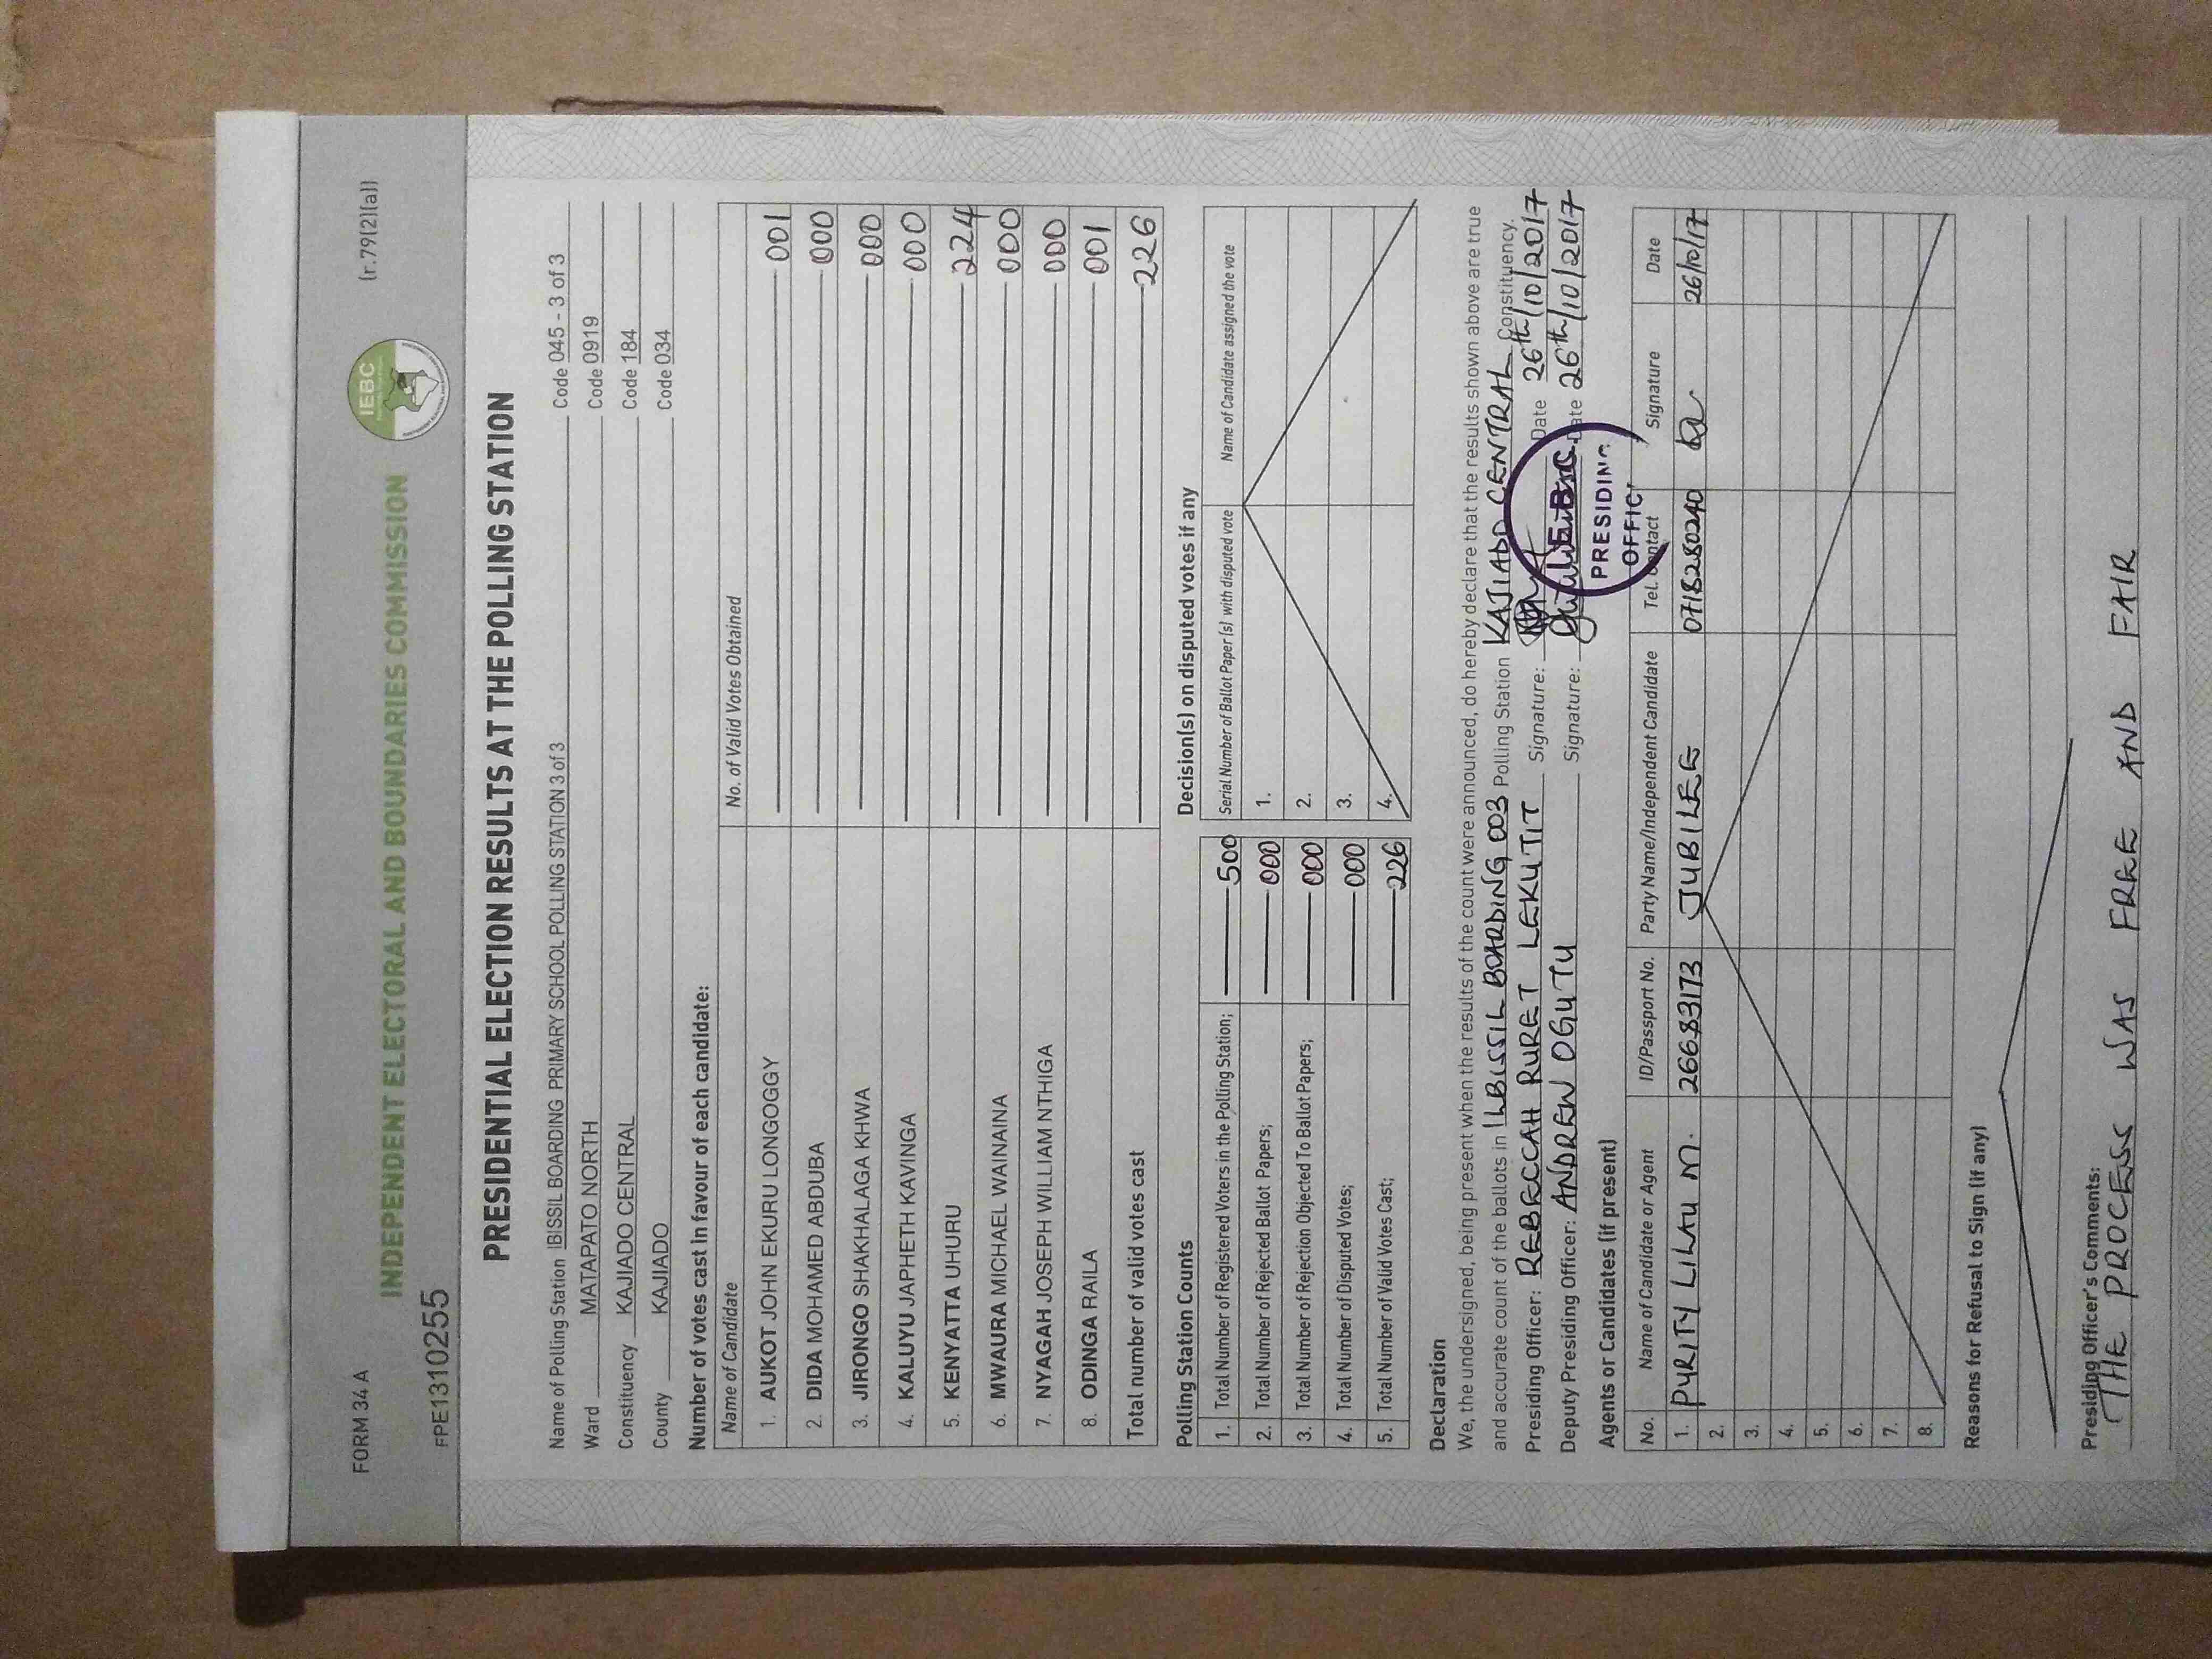 FORM 34 A
(r.79(2)(a))
IEBC
INDEPENDENT ELECTORAL AND BOUNDARIES COMMISSION
FPE1310255
PRESIDENTIAL ELECTION RESULTS AT THE POLLING STATION
Name of Polling Station IBISSIL BOARDING PRIMARY SCHOOL POLLING STATION 3 of 3 Code 045 - 3 of 3
Ward MATAPATO NORTH Code 0919
Constituency KAJIADO CENTRAL Code 184
County KAJIADO Code 034
Number of votes cast in favour of each candidate:
Name of Candidate No. of Valid Votes Obtained
1. AUKOT JOHN EKURU LONGOGGY 001
2. DIDA MOHAMED ABDUBA 000
3. JIRONGO SHAKHALAGA KHWA 000
4. KALUYU JAPHETH KAVINGA 000
5. KENYATTA UHURU 224
6. MWAURA MICHAEL WAINAINA 000
7. NYAGAH JOSEPH WILLIAM NTHIGA 000
8. ODINGA RAILA 001
Total number of valid votes cast 226
Polling Station Counts
1. Total Number of Registered Voters in the Polling Station; 500
2. Total Number of Rejected Ballot Papers; 000
3. Total Number of Rejection Objected To Ballot Papers; 000
4. Total Number of Disputed Votes; 000
5. Total Number of Valid Votes Cast; 226
Decision(s) on disputed votes if any
Serial Number of Ballot Paper (s) with disputed vote Name of Candidate assigned the vote
1.
2.
3.
4.
Declaration
We, the undersigned, being present when the results of the count were announced, do hereby declare that the results shown above are true
and accurate count of the ballots in ILBISSIL BOARDING 003 Polling Station KAJIADO CENTRAL Constituency.
Presiding Officer: REBECCAH RURET LEKUTIT Signature: Date 26th/10/2017
Deputy Presiding Officer: ANDREW OGUTU Signature: Date 26th/10/2017
IEBC
PRESIDING
OFFIC
Agents or Candidates (if present)
No. Name of Candidate or Agent ID/Passport No. Party Name/Independent Candidate Tel. Contact Signature Date
1. PURITY LILAU M. 26683173 JUBILEE 0718280240 26/10/17
2.
3.
4.
5.
6.
7.
8.
Reasons for Refusal to Sign (if any)
Presiding Officer's Comments:
THE PROCESS WAS FREE AND FAIR